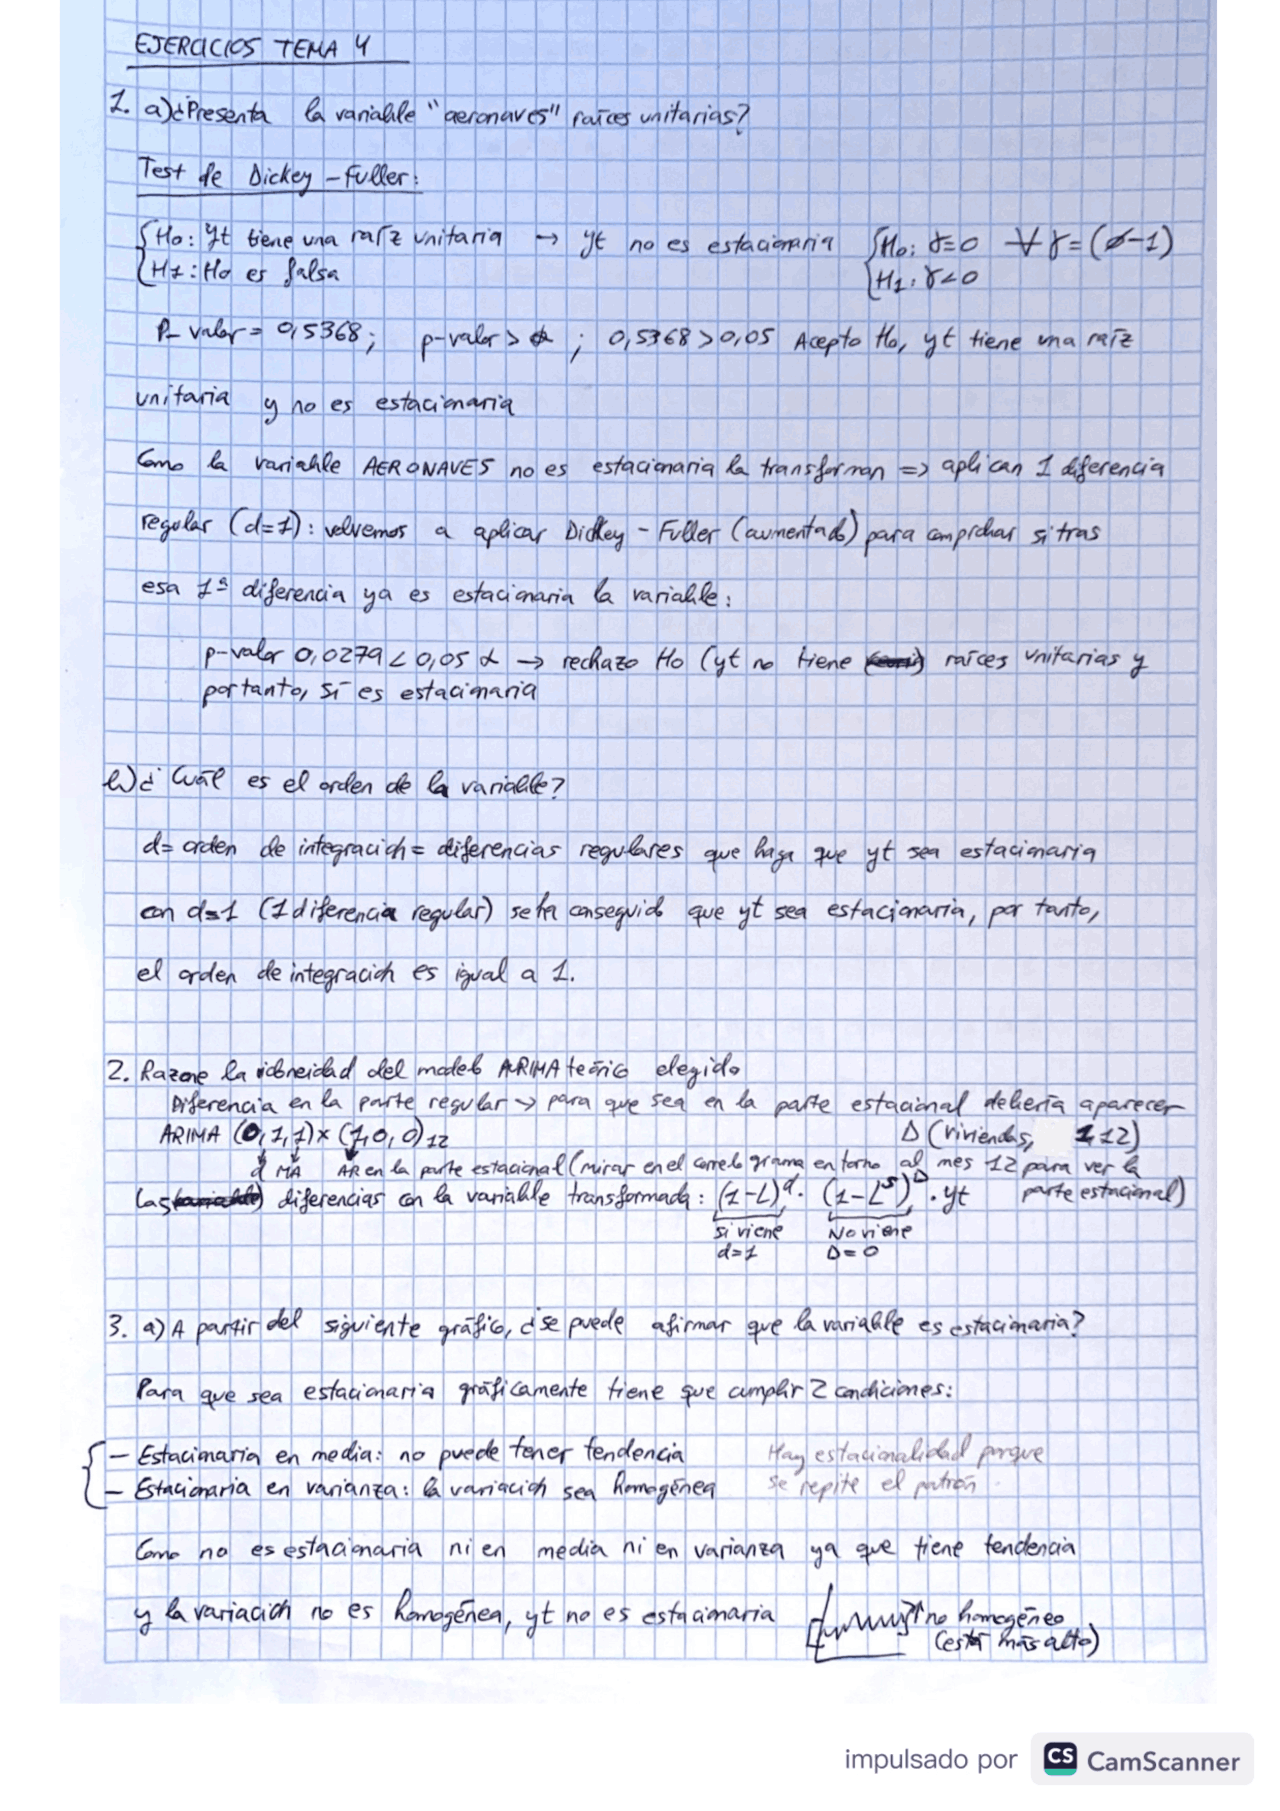 EJERCICIOS TEMA 4
1. a) ¿Presenta la variable "aeronaves" raíces unitarias?
Test de Dickey-Fuller:
{H0: yt tiene una raíz unitaria → yt no es estacionaria {H0: γ=0 ∀ γ=(ø-1)
{H1: H0 es falsa {H1: γ<0
P-valor = 0,5368; p-valor > α ; 0,5368 > 0,05 Acepto H0, yt tiene una raíz
unitaria y no es estacionaria
Como la variable AERONAVES no es estacionaria la transforman => aplican 1 diferencia
regular (d=1): volvemos a aplicar Dickey-Fuller (aumentado) para comprobar si tras
esa 1ª diferencia ya es estacionaria la variable:
p-valor 0,0279 < 0,05 α → rechazo H0 (yt no tiene raíces unitarias y
por tanto, sí es estacionaria
b) ¿Cuál es el orden de la variable?
d= orden de integración = diferencias regulares que haga que yt sea estacionaria
con d=1 (1 diferencia regular) se ha conseguido que yt sea estacionaria, por tanto,
el orden de integración es igual a 1.
2. Razone la idoneidad del modelo ARIMA teórico elegido
Diferencia en la parte regular → para que sea en la parte estacional debería aparecer
ARIMA (0,1,1)×(1,0,0)12 Δ(viviendas, 1,12)
d MA AR en la parte estacional (mirar en el correlograma entorno al mes 12 para ver la
Las diferencias con la variable transformada: (1-L)^d · (1-L^s)^D · yt parte estacional)
Si viene No viene
d=1 D=0
3. a) A partir del siguiente gráfico, ¿se puede afirmar que la variable es estacionaria?
Para que sea estacionaria gráficamente tiene que cumplir 2 condiciones:
{ - Estacionaria en media: no puede tener tendencia Hay estacionalidad porque
- Estacionaria en varianza: la variación sea homogénea se repite el patrón.
Como no es estacionaria ni en media ni en varianza ya que tiene tendencia
y la variación no es homogénea, yt no es estacionaria no homogéneo
(está más alto)
impulsado por CS CamScanner